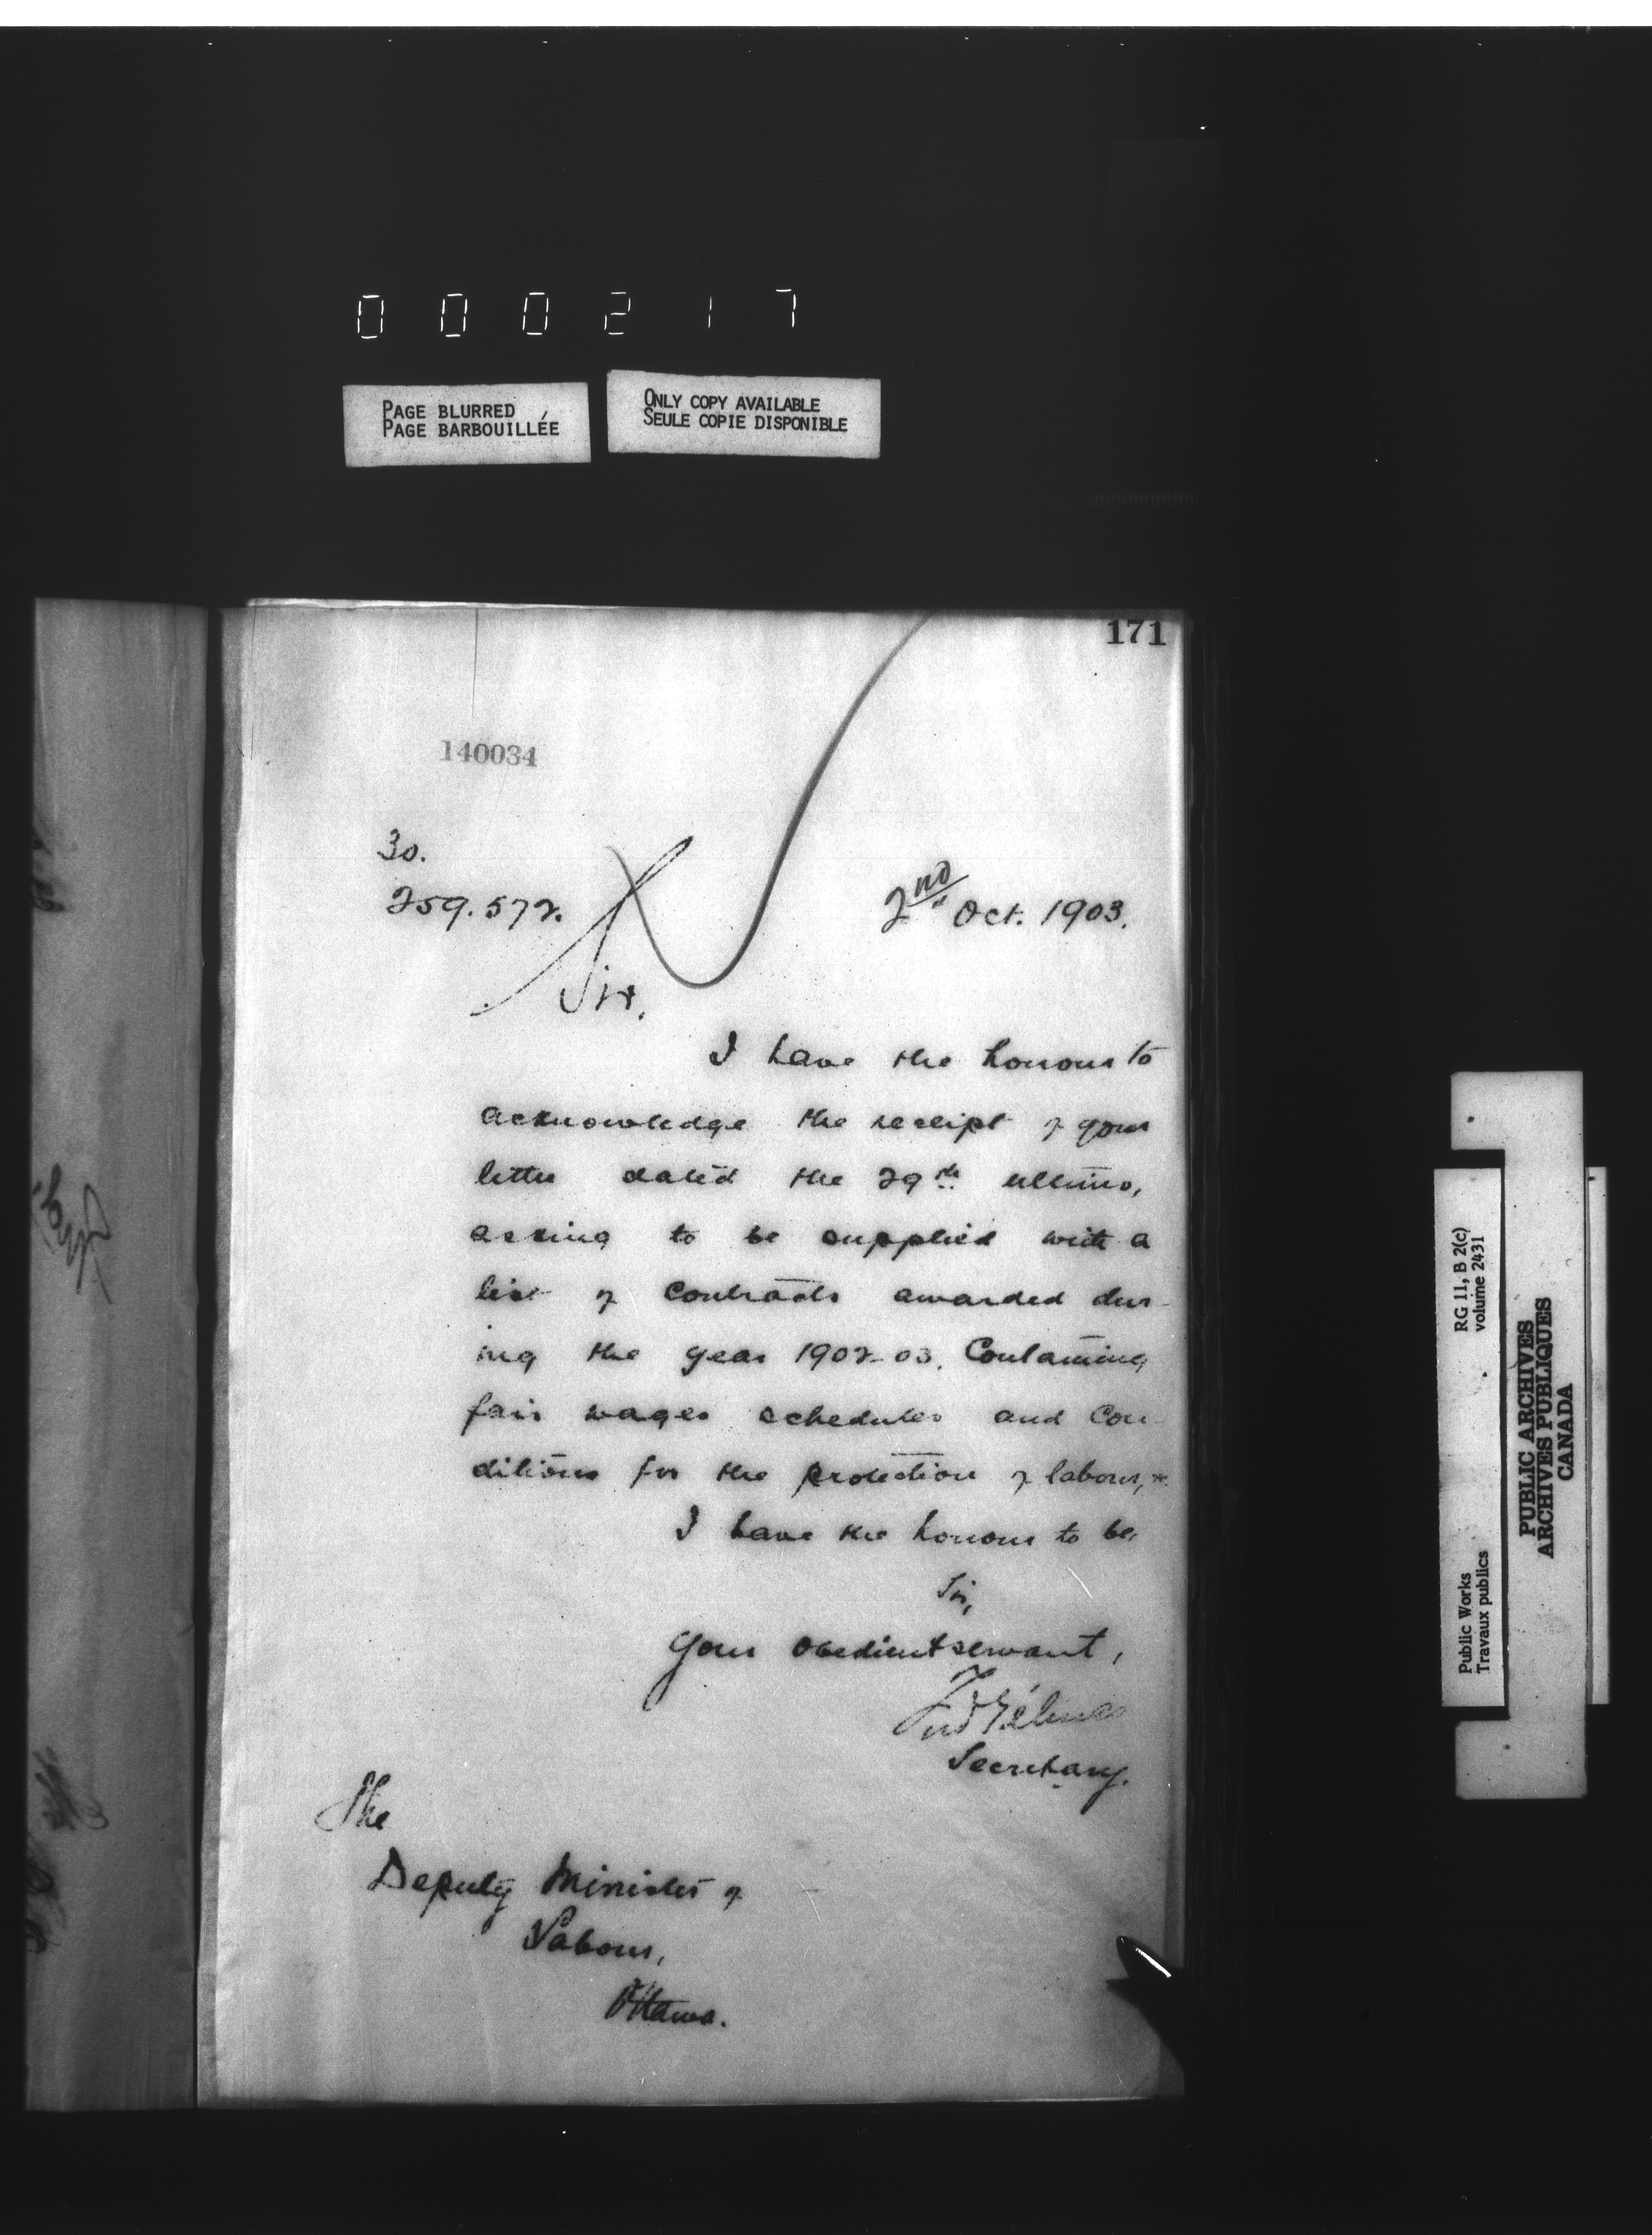 000217
PAGE BLURRED
PAGE BARBOUILLÉE
ONLY COPY AVAILABLE
SEULE COPIE DISPONIBLE
171
140034
30.
259.572.
2nd Oct. 1903.
Sir,
I have the honour to
acknowledge the receipt of your
letter dated the 29th ultimo,
asking to be supplied with a
list of contracts awarded dur-
ing the year 1902-03. Containing
fair wages schedules and Con-
ditions for the protection of labour,
I have the honour to be,
Sir,
Your obedient servant,
Fred Gélinas
Secretary.
The
Deputy Minister of
Labour,
Ottawa.
RG 11, B 2(c)
volume 2431
Public Works
Travaux publics
PUBLIC ARCHIVES
ARCHIVES PUBLIQUES
CANADA